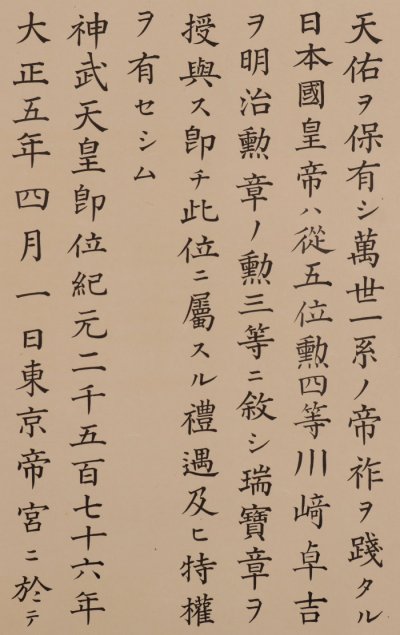 天佑ヲ保有シ萬世一系ノ帝祚ヲ踐タル
日本國皇帝ハ從五位勲四等川﨑卓吉
ヲ明治勲章ノ勲三等ニ敘シ瑞寶章ヲ
授與ス卽チ此位ニ屬スル禮遇及ヒ特權
ヲ有セシム
神武天皇卽位紀元二千五百七十六年
大正五年四月一日東京帝宮ニ於テ